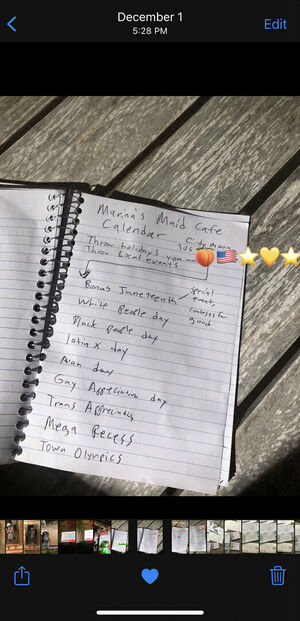 December 1
5:28 PM
Edit
Marina's Maid Cafe
Calendar
Throw holidays you
Throw Local events
special
events
contests for
good
Bonus Juneteenth
White people day
Black people day
latin x day
Asian day
Gay Appreciation day
Trans Appreciation
Mega Recess
Town Olympics